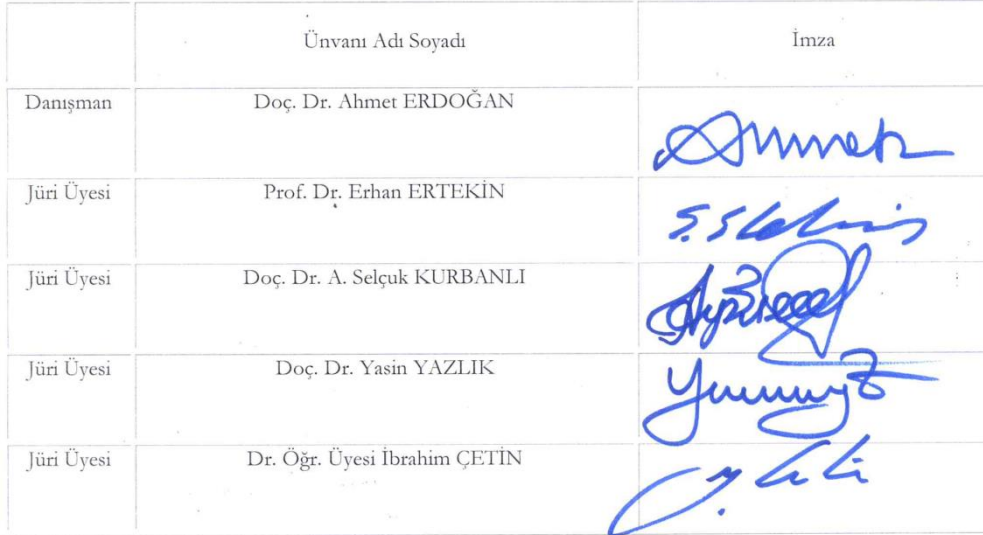 Ünvanı Adı Soyadı İmza
Danışman Doç. Dr. Ahmet ERDOĞAN
Jüri Üyesi Prof. Dr. Erhan ERTEKİN
Jüri Üyesi Doç. Dr. A. Selçuk KURBANLI
Jüri Üyesi Doç. Dr. Yasin YAZLIK
Jüri Üyesi Dr. Öğr. Üyesi İbrahim ÇETİN